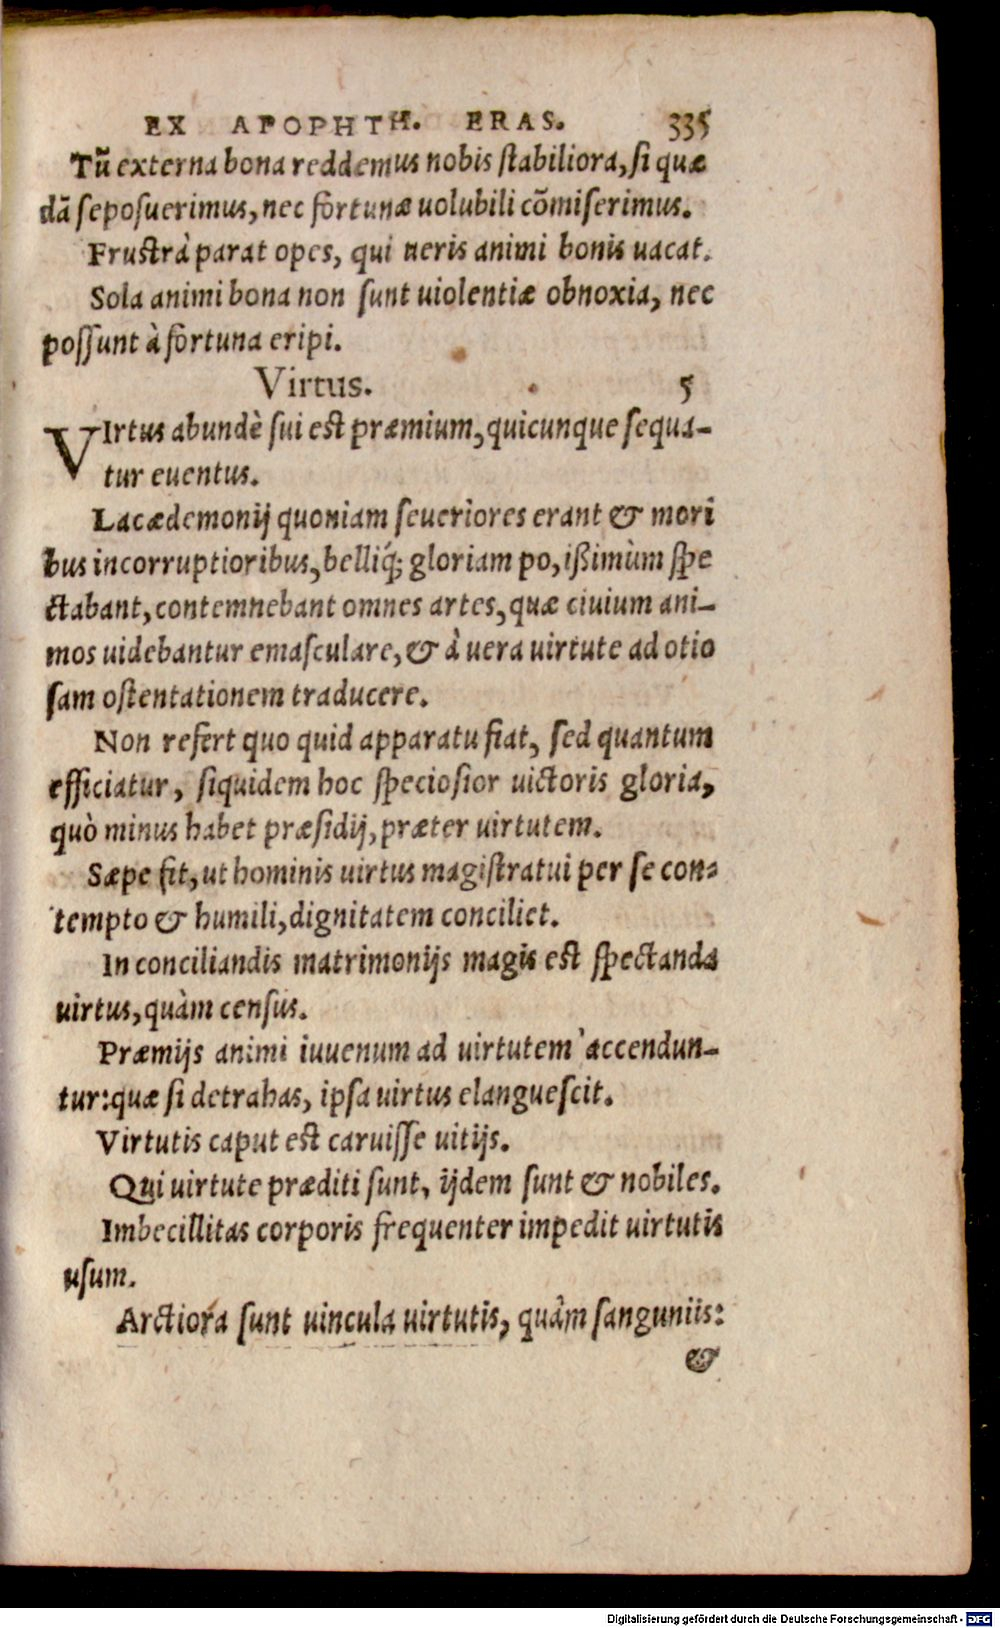 EX APOPHTH. ERAS. 335
Tũ externa bona reddemus nobis stabiliora, si quæ
dã seposuerimus, nec fortunæ uolubili cõmiserimus.
Frustrà parat opes, qui ueris animi bonis uacat.
Sola animi bona non sunt uiolentiæ obnoxia, nec
possunt à fortuna eripi.
Virtus. 5
VIrtus abundè sui est præmium, quicunque sequa-
tur euentus.
Lacædemonij quoniam seueriores erant & mori
bus incorruptioribus, belliq́; gloriam po,ißimùm spe
ctabant, contemnebant omnes artes, quæ ciuium ani-
mos uidebantur emasculare, & à uera uirtute ad otio
sam ostentationem traducere.
Non refert quo quid apparatu fiat, sed quantum
efficiatur, siquidem hoc speciosior uictoris gloria,
quò minus habet præsidij, præter uirtutem.
Sæpe fit, ut hominis uirtus magistratui per se con-
tempto & humili, dignitatem conciliet.
In conciliandis matrimonijs magis est spectanda
uirtus, quàm census.
Præmijs animi iuuenum ad uirtutem accendun-
tur: quæ si detrahas, ipsa uirtus elanguescit.
Virtutis caput est caruisse uitijs.
Qui uirtute præditi sunt, ijdem sunt & nobiles.
Imbecillitas corporis frequenter impedit uirtutis
usum.
Arctiora sunt uincula uirtutis, quàm sanguniis:
&
Digitalisierung gefördert durch die Deutsche Forschungsgemeinschaft - DFG